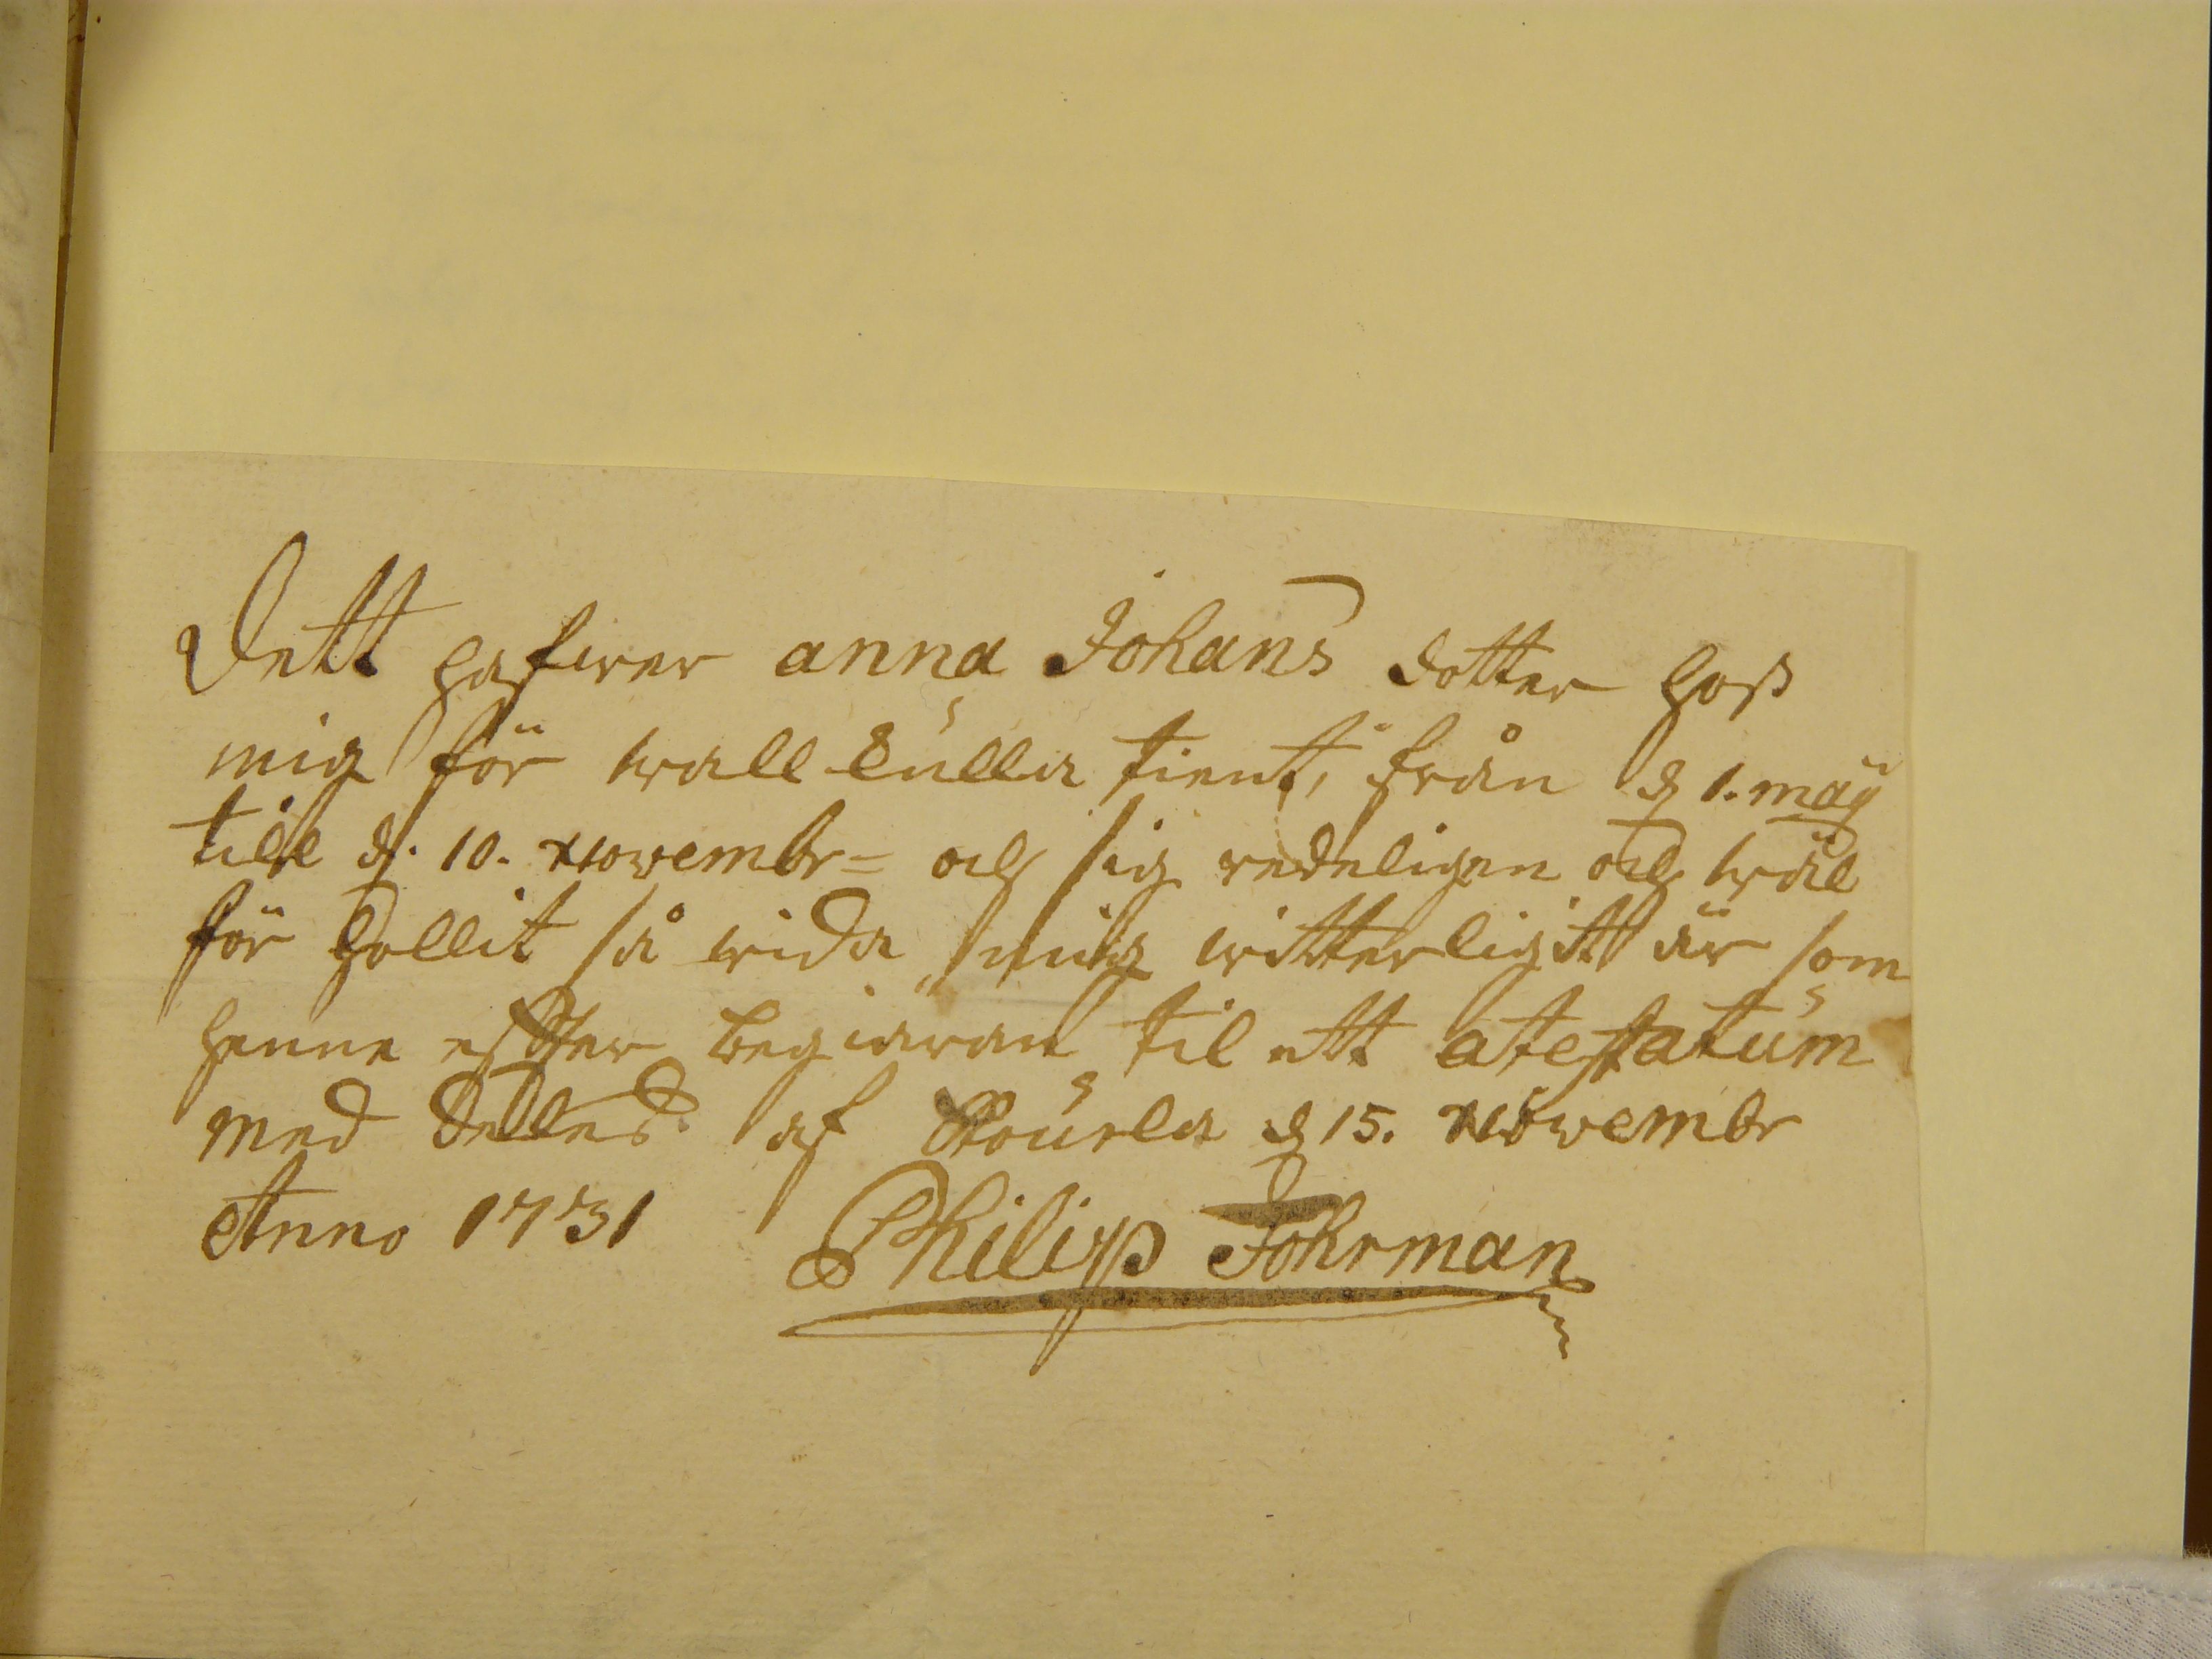 Dett hafwer anna Johans dotter hoss
mig för wall kulla tient, från d 1. maÿ
till d. 10. Novembr= och sig redeligen och wäl
för hollit så wida mig witterligitt är som
henne effter begiäran til ett atestatum
med deles af d 15. November
Anno 1731 Philip Fohrman